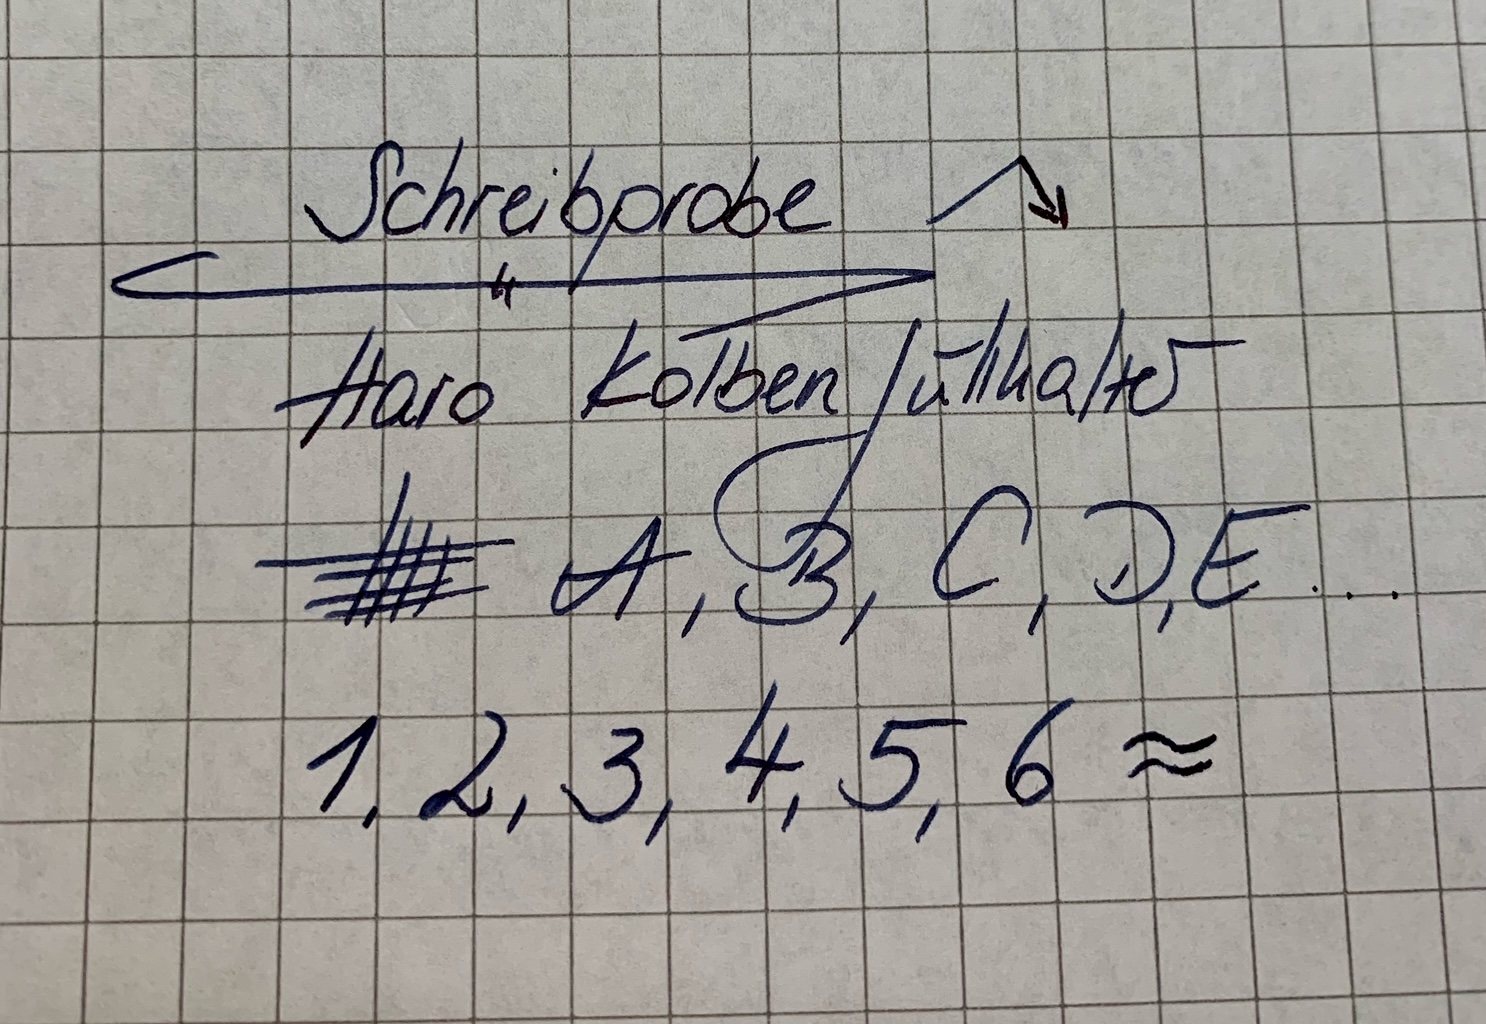 Schreibprobe
Haro Kolbenfüllhalter
A, B, C, D, E...
1, 2, 3, 4, 5, 6 ≈